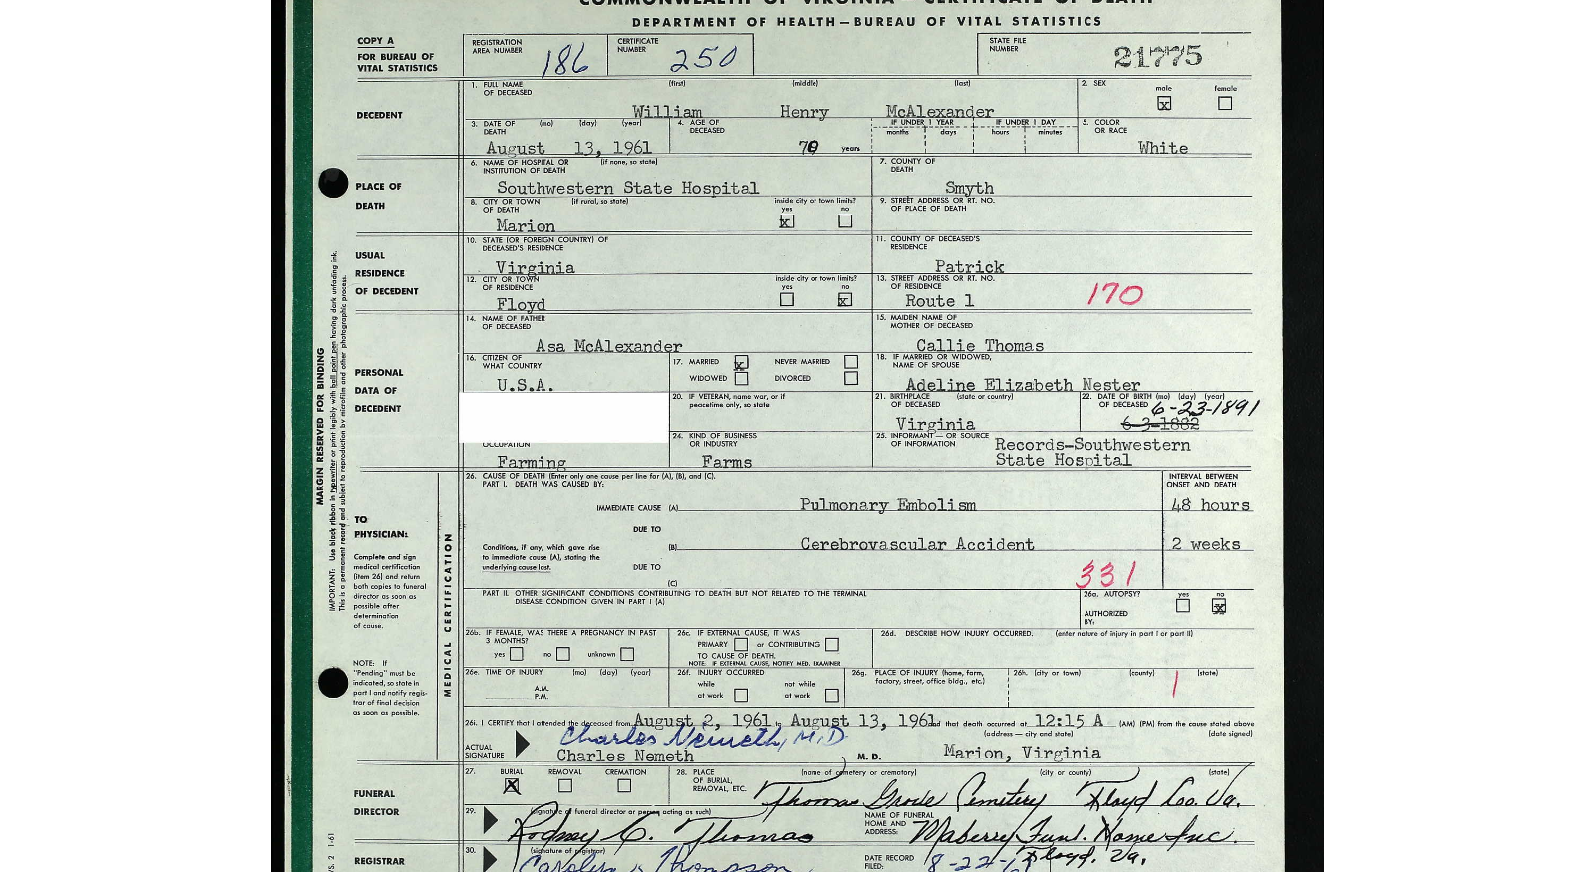 COMMONWEALTH OF VIRGINIA — CERTIFICATE OF DEATH
DEPARTMENT OF HEALTH — BUREAU OF VITAL STATISTICS
COPY A
FOR BUREAU OF
VITAL STATISTICS
REGISTRATION
AREA NUMBER 186
CERTIFICATE
NUMBER 250
STATE FILE
NUMBER 21775
DECEDENT
1. FULL NAME
OF DECEASED
(first) (middle) (last)
William Henry McAlexander
2. SEX
male female
x
3. DATE OF
DEATH
(mo) (day) (year)
August 13, 1961
4. AGE OF
DECEASED
70 years
IF UNDER 1 YEAR IF UNDER 1 DAY
months days hours minutes
5. COLOR
OR RACE
White
PLACE OF
DEATH
6. NAME OF HOSPITAL OR (if none, so state)
INSTITUTION OF DEATH
Southwestern State Hospital
7. COUNTY OF
DEATH
Smyth
8. CITY OR TOWN (if rural, so state)
OF DEATH
Marion
inside city or town limits?
yes no
x
9. STREET ADDRESS OR RT. NO.
OF PLACE OF DEATH
USUAL
RESIDENCE
OF DECEDENT
10. STATE (OR FOREIGN COUNTRY) OF
DECEASED'S RESIDENCE
Virginia
11. COUNTY OF DECEASED'S
RESIDENCE
Patrick
12. CITY OR TOWN
OF RESIDENCE
Floyd
inside city or town limits?
yes no
x
13. STREET ADDRESS OR RT. NO.
OF RESIDENCE
Route 1 170
PERSONAL
DATA OF
DECEDENT
14. NAME OF FATHER
OF DECEASED
Asa McAlexander
15. MAIDEN NAME OF
MOTHER OF DECEASED
Callie Thomas
16. CITIZEN OF
WHAT COUNTRY
U.S.A.
17. MARRIED x NEVER MARRIED
WIDOWED DIVORCED
18. IF MARRIED OR WIDOWED,
NAME OF SPOUSE
Adeline Elizabeth Nester
20. IF VETERAN, name war, or if
peacetime only, so state
21. BIRTHPLACE (state or country)
OF DECEASED
Virginia
22. DATE OF BIRTH (mo) (day) (year)
OF DECEASED 6-23-1891
6-3-1882
OCCUPATION
Farming
24. KIND OF BUSINESS
OR INDUSTRY
Farms
25. INFORMANT — OR SOURCE
OF INFORMATION
Records-Southwestern
State Hospital
MARGIN RESERVED FOR BINDING
IMPORTANT: Use black ribbon in typewriter or print legibly with ball point pen having dark unfading ink.
This is a permanent record and subject to reproduction by microfilm and other photographic process.
TO
PHYSICIAN:
Complete and sign
medical certification
(item 26) and return
both copies to funeral
director as soon as
possible after
determination
of cause.
NOTE: If
"Pending" must be
indicated, so state in
part I and notify regis-
trar of final decision
as soon as possible.
MEDICAL CERTIFICATION
26. CAUSE OF DEATH (Enter only one cause per line for (A), (B), and (C).
PART I. DEATH WAS CAUSED BY:
INTERVAL BETWEEN
ONSET AND DEATH
IMMEDIATE CAUSE (A) Pulmonary Embolism 48 hours
DUE TO
Conditions, if any, which gave rise
to immediate cause (A), stating the
underlying cause last.
(B) Cerebrovascular Accident 2 weeks
DUE TO
(C)
331
PART II. OTHER SIGNIFICANT CONDITIONS CONTRIBUTING TO DEATH BUT NOT RELATED TO THE TERMINAL
DISEASE CONDITION GIVEN IN PART I (A)
26a. AUTOPSY? yes no
x
AUTHORIZED
BY:
26b. IF FEMALE, WAS THERE A PREGNANCY IN PAST
3 MONTHS?
yes no unknown
26c. IF EXTERNAL CAUSE, IT WAS
PRIMARY or CONTRIBUTING
TO CAUSE OF DEATH.
NOTE: IF EXTERNAL CAUSE, NOTIFY MED. EXAMINER
26d. DESCRIBE HOW INJURY OCCURRED. (enter nature of injury in part I or part II)
26e. TIME OF INJURY (mo) (day) (year)
A.M.
P.M.
26f. INJURY OCCURRED
while not while
at work at work
26g. PLACE OF INJURY (home, farm,
factory, street, office bldg., etc.)
26h. (city or town) (county) (state)
1
26i. I CERTIFY that I attended the deceased from August 2, 1961 to August 13, 1961 and that death occurred at 12:15 A (AM) (PM) from the cause stated above
(address — city and state) (date signed)
Charles Nemeth, M.D.
ACTUAL
SIGNATURE
Charles Nemeth M. D. Marion, Virginia
FUNERAL
DIRECTOR
27. BURIAL REMOVAL CREMATION
X
28. PLACE
OF BURIAL,
REMOVAL, ETC.
(name of cemetery or crematory) (city or county) (state)
Thomas Grove Cemetery Floyd Co. Va.
29. (signature of funeral director or person acting as such)
Rodney C. Thomas
NAME OF FUNERAL
HOME AND
ADDRESS:
Maberry Funl. Home Inc.
Floyd, Va.
REGISTRAR
30. (signature of registrar)
Carolyn Thompson
DATE RECORD
FILED:
8-22-61
VS. 2 1-61